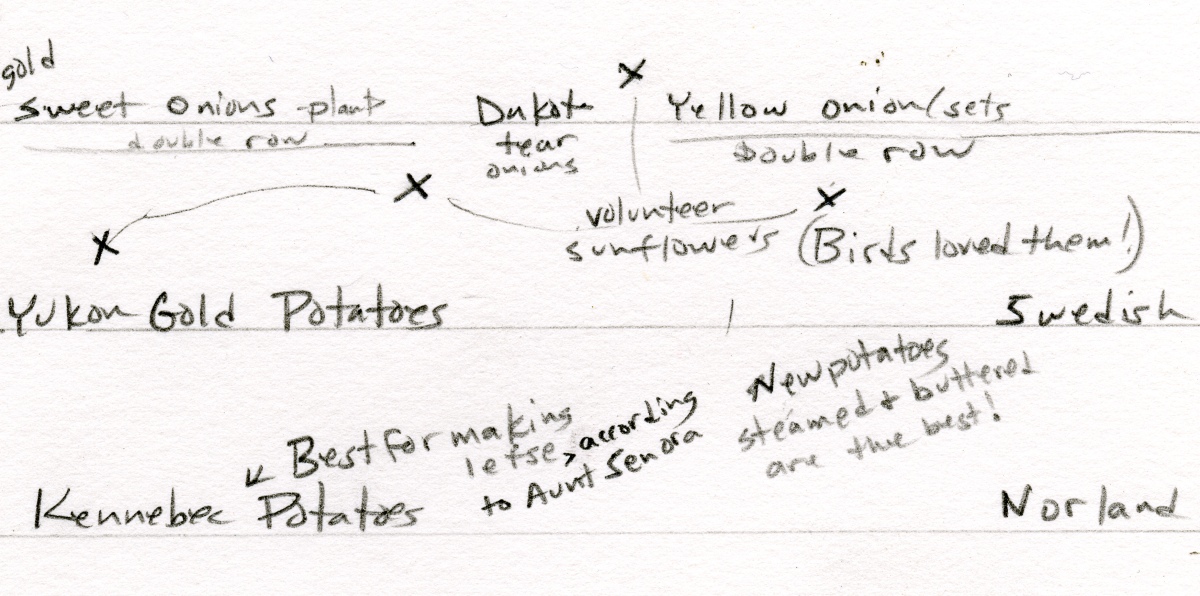 gold
sweet onions-plant
double row
Dakota
tear
onions
Yellow onion/sets
Double row
volunteer
sunflowers (Birds loved them!)
Yukon Gold Potatoes
Swedish
Best for making
lefse, according
to Aunt Senora
New potatoes
steamed & buttered
are the best!
Kennebec Potatoes
Norland